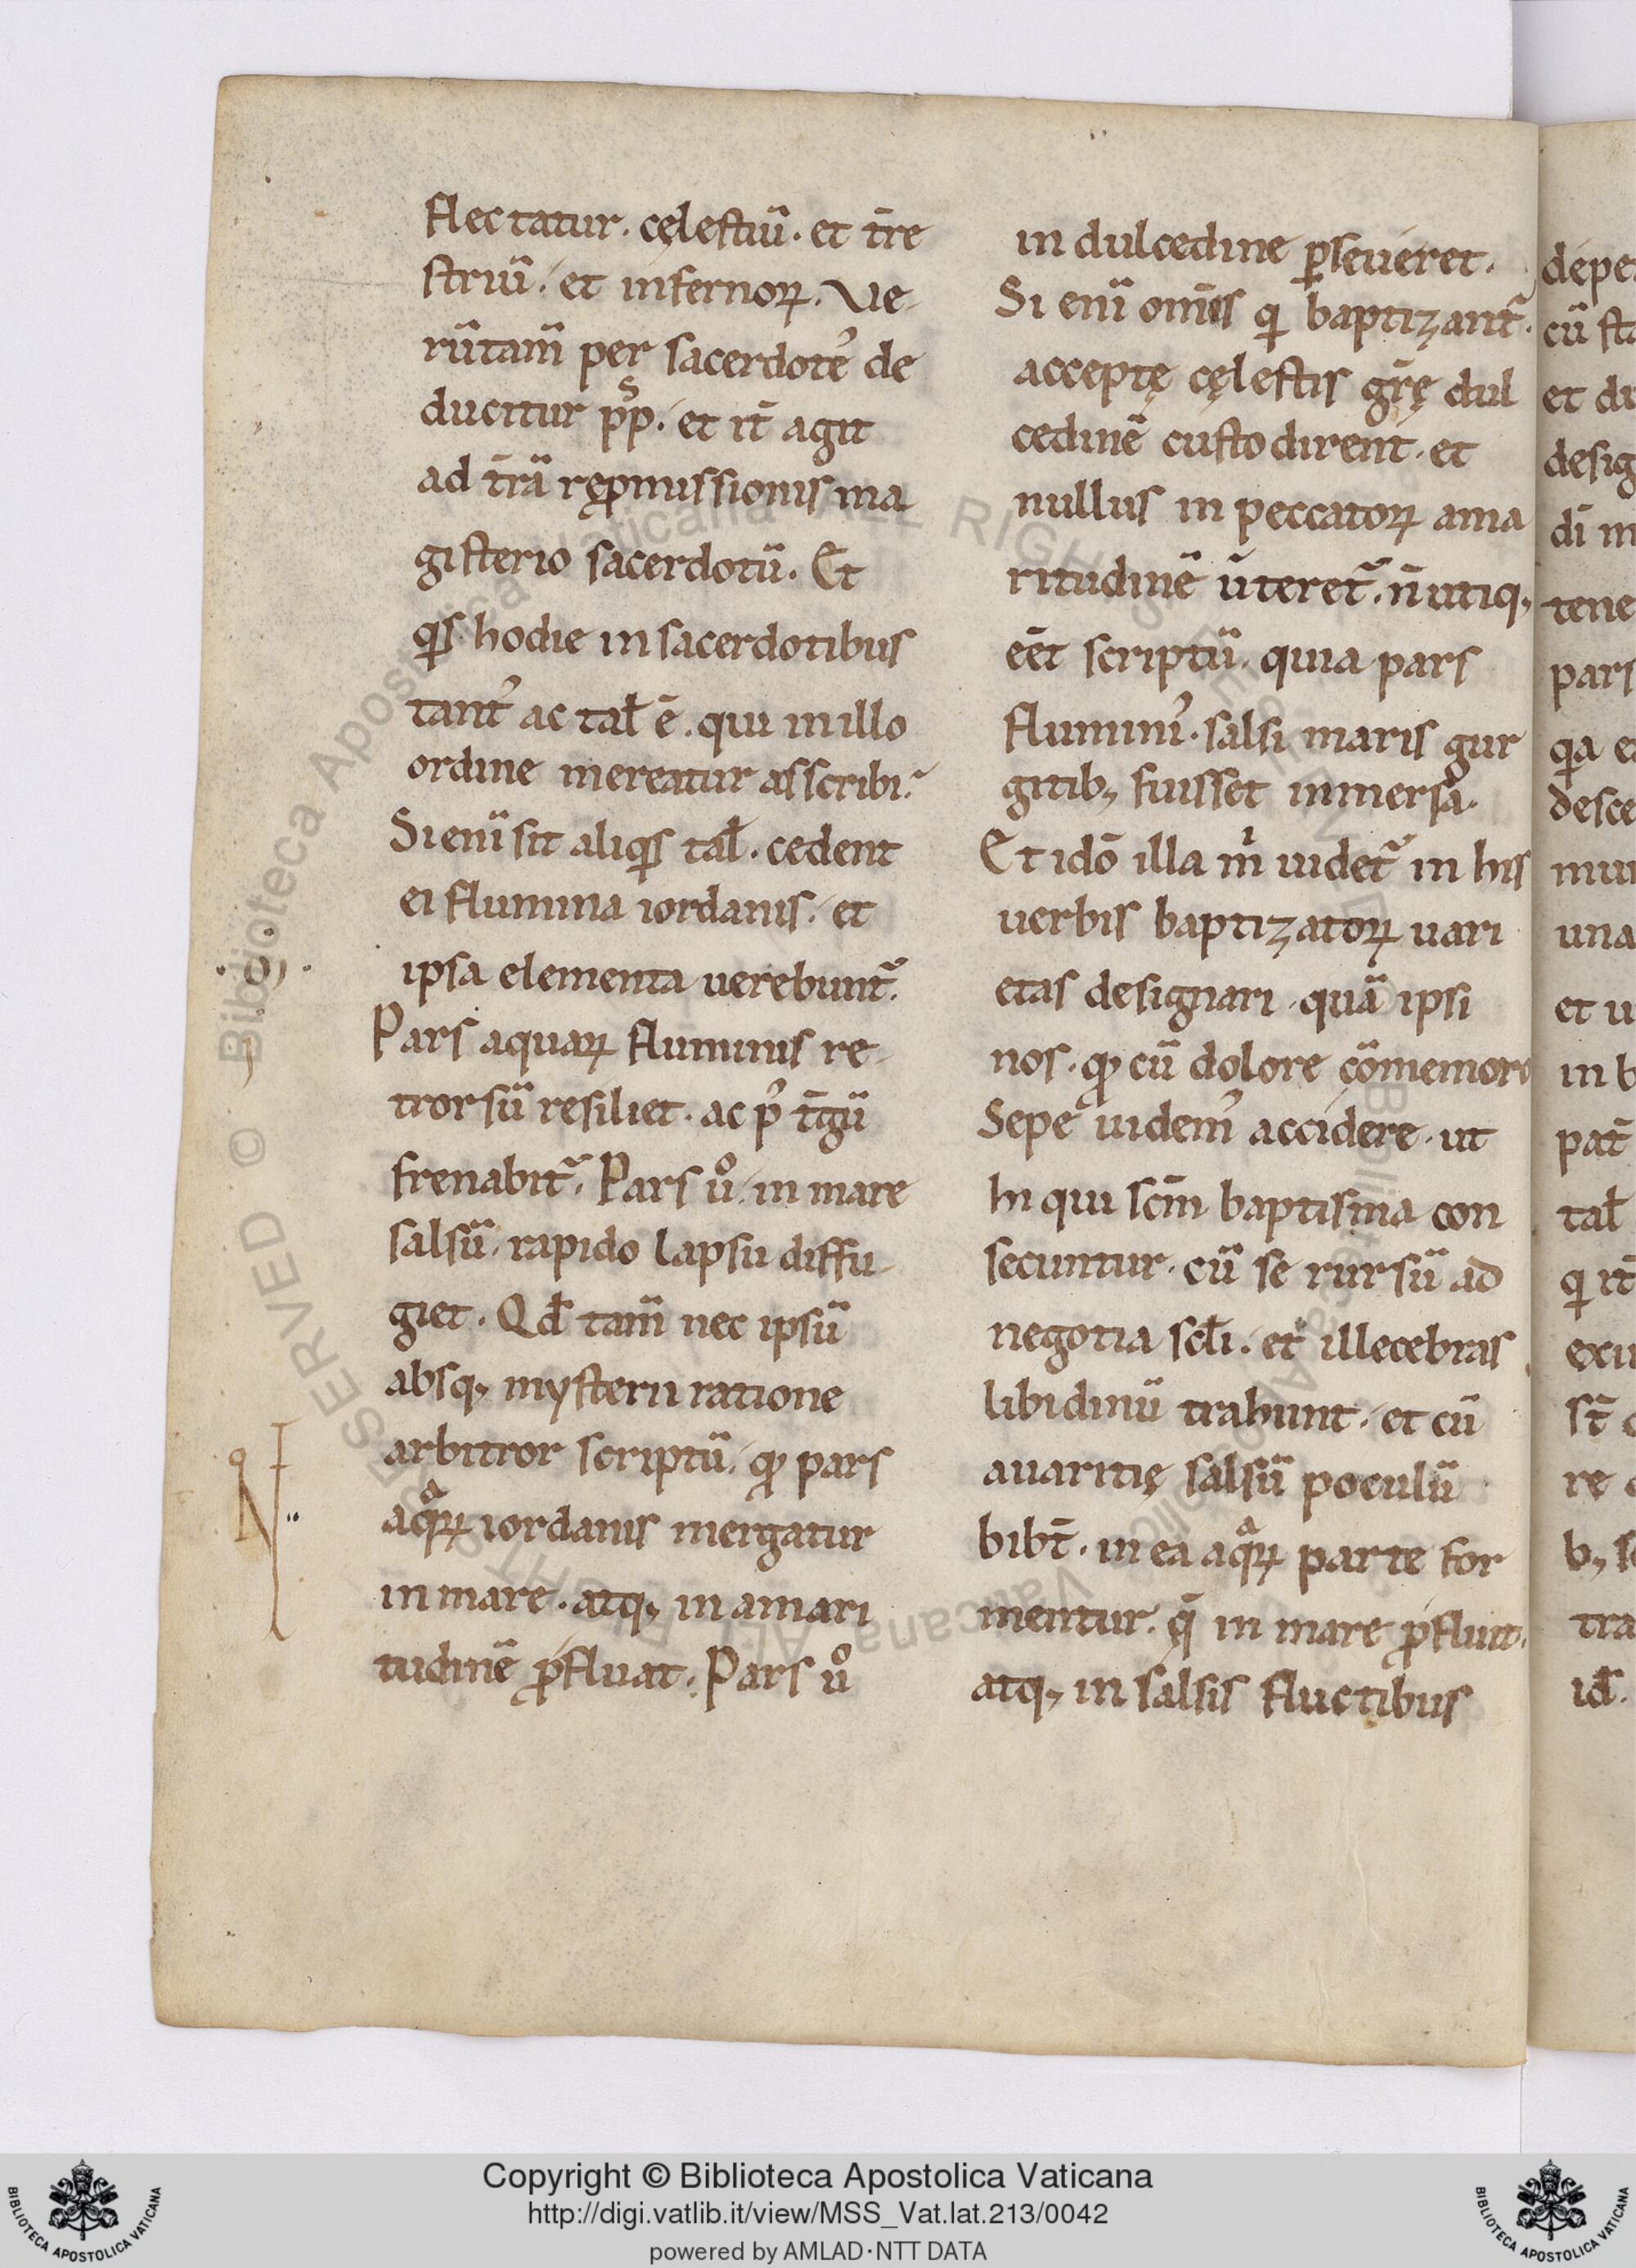 flectatur. cęlestiū. et t̄re
striū. et infernoꝝ. Ve-
rūtam̄ per sacerdotē de
ducitur pp̄s. et it̄ agit
ad t̄rā reꝓmissionis ma
gisterio sacerdotū. Et
qͥs hodie in sacerdotibus
tantꝰ ac tał ē. qui in illo
ordine mereatur asscribi?
Si enī sit aliqͥs tał. cedent
ei flumina iordanis. et
ipsa elementa uerebunt᷑.
Pars aquaꝝ fluminis re-
trorsū resiliet. ac pꝰ t̄gū
frenabit᷑. Pars uͦ. in mare
salsū. rapido lapsu diffu-
giet. Qd̄ tam̄ nec ipsū
absq; mysterii ratione
arbitror scriptū. ꝙ pars
aqͣꝝ iordanis mergatur
in mare. atq; in amari
tudinē ꝓfluat. Pars uͦ
in dulcedine ꝑseueret.
Si enī om̄s qͥ baptizant᷑.
acceptę cęlestis gr̄ę dul
cedinē custodirent. et
nullus in peccatoꝝ ama
ritudinē ūteret᷑. n̄ utiq;
eēt scriptū. quia pars
fluminꝭ. salsi maris gur
gitib; fuisset inmersa.
Et idō illa mͥ uidet᷑ in his
uerbis baptizatoꝝ uari
etas designari. quā ipsi
nos. ꝙ cū dolore cōmemoro
Sepe uidemꝰ accidere. ut
hi qui scm̄ baptisma con
secuntur. cū se rursū ad
negotia scłi. et illecebras
libidinū trahunt. et cū
auaritię salsū poculū
bibt̄. in ea aqͣꝝ parte for
mentur. q̄ in mare ꝓfluit.
atq; in salsis fluctibus
depe
cū sta
et du
desig
dī m
tene
pars
qͥa e
desce
mun
una
et u
in b
pat̄
tał
qͥ it̄
exu
st̄
re
b; s
tra
id̄.
Copyright © Biblioteca Apostolica Vaticana
http://digi.vatlib.it/view/MSS_Vat.lat.213/0042
powered by AMLAD·NTT DATA
BIBLIOTECA APOSTOLICA VATICANA
BIBLIOTECA APOSTOLICA VATICANA